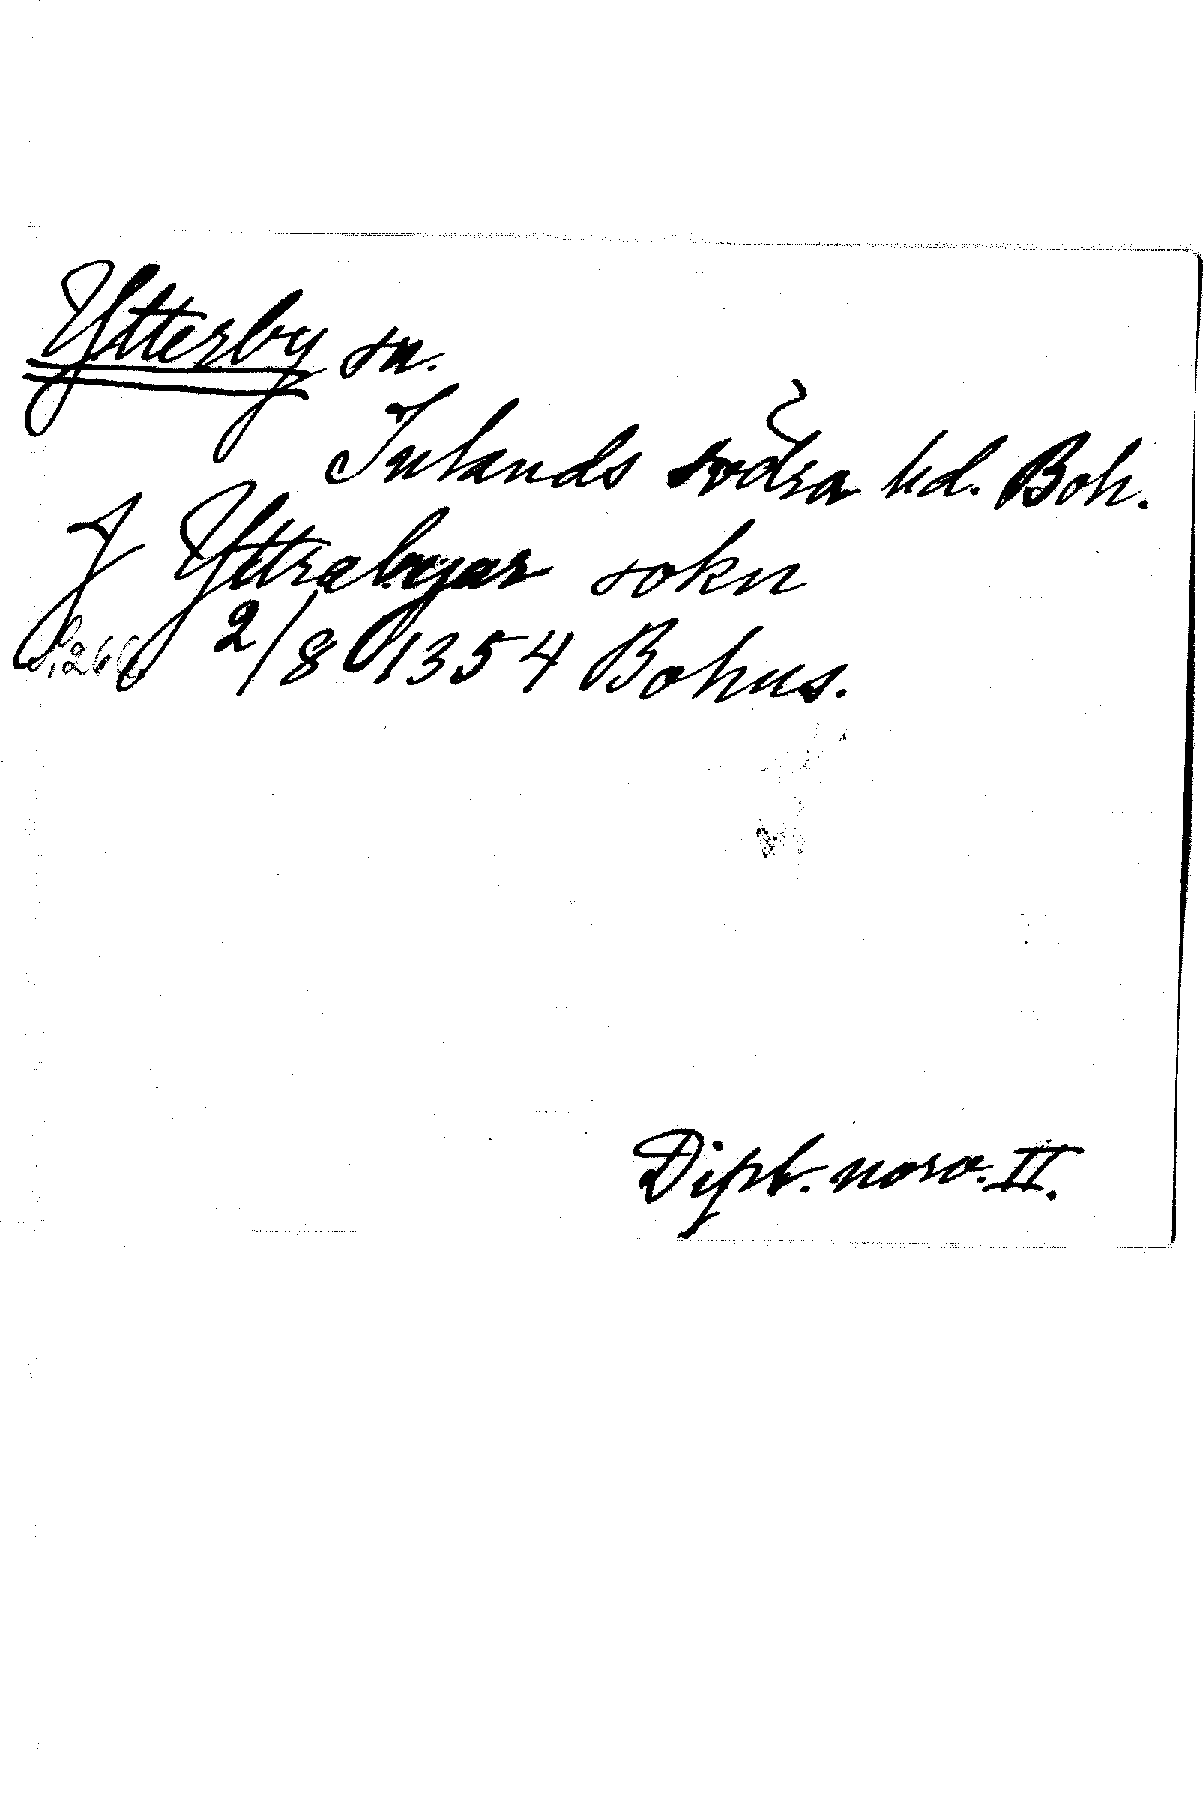 Ytterby sn.
Inlands södra hd. Boh.
J Yttrabyar sokn
S. 266 2/8 1354 Bohus.
Dipl. norv. II.